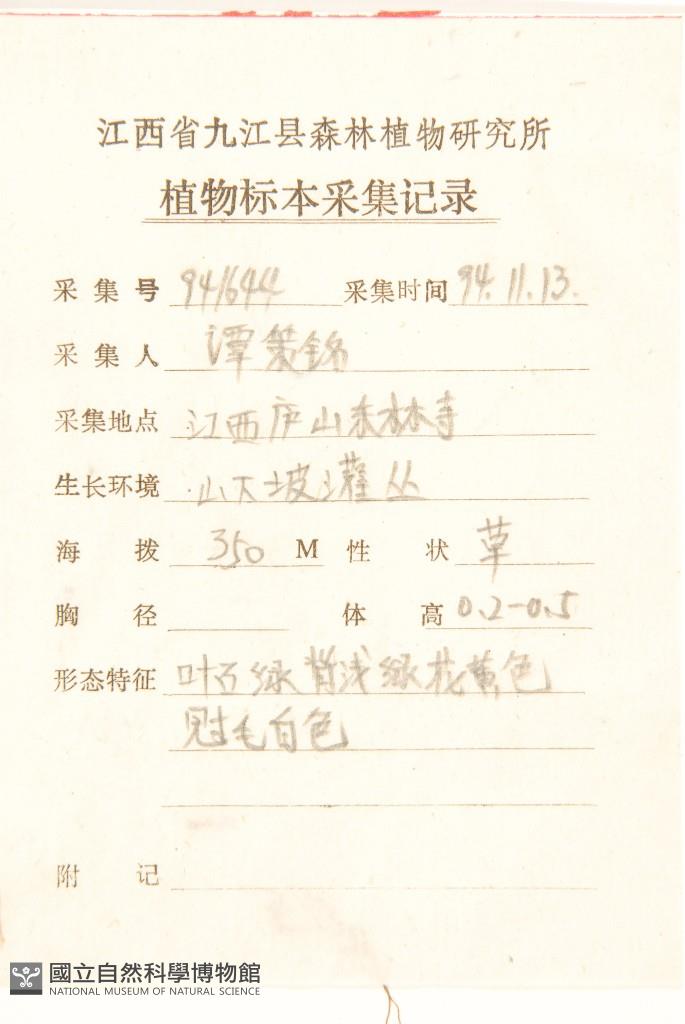 江西省九江县森林植物研究所
植物标本采集记录
采集号 941644 采集时间 94.11.13.
采集人 谭策锦
采集地点 江西庐山东林寺
生长环境 山下坡灌丛
海拨 350 M 性状 草
胸径 体高 0.2-0.5
形态特征 叶 绿背浅绿花黄色
冠毛白色
附记
國立自然科學博物館
NATIONAL MUSEUM OF NATURAL SCIENCE